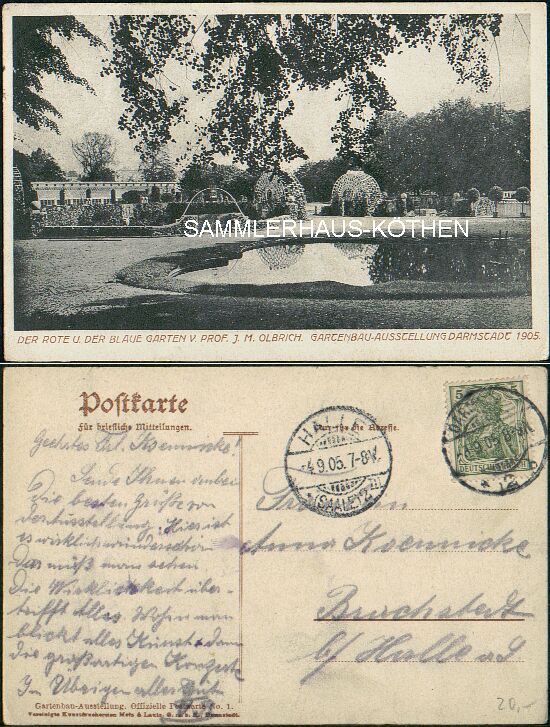 SAMMLERHAUS-KÖTHEN
DER ROTE U. DER BLAUE GARTEN V. PROF. J. M. OLBRICH. GARTENBAU-AUSSTELLUNG DARMSTADT 1905.
Postkarte
Für briefliche Mitteilungen.
Nur für die Adresse.
5 5
DEUTSCHES REICH
HALLE
4.9.05. 7-8V.
(SAALE) 2
Geehrtes Frl. Koennicke!
Sende Ihnen anbei
die besten Grüße von
der Ausstellung. Hier ist
es wirklich wunderschön
Das muß man sehen
Die Wirklichkeit über-
trifft Alles. Wohin man
blickt alles Kunst, dann
die großartigen Konzerte
Im Übrigen alles Gut
Fräulein
Anna Koennicke
Brachstedt
b/ Halle a/S
Gartenbau-Ausstellung. Offizielle Postkarte No. 1.
Vereinigte Kunstdruckereien Metz & Lautz, G. m. b. H., Darmstadt.
20,-